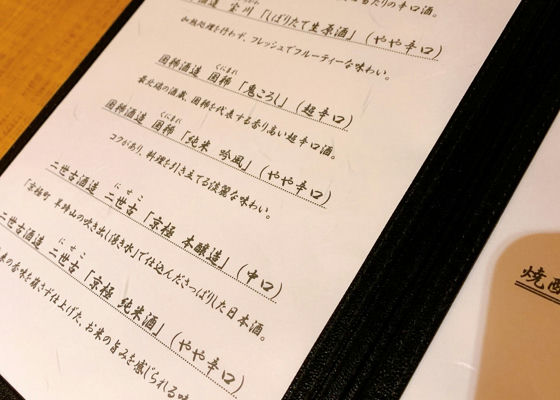 たりの辛口酒。
酒造 宝川「しぼりたて生原酒」(やや辛口)
加熱処理を行わず、フレッシュでフルーティーな味わい。
くにまれ
国稀酒造 国稀「鬼ころし」(超辛口)
最北端の酒蔵、国稀を代表する香り高い超辛口酒。
くにまれ
国稀酒造 国稀「純米 吟風」(やや辛口)
コクがあり、料理を引き立てる淡麗な味わい。
にせこ
二世古酒造 二世古「京極 本醸造」(中口)
「京極町 羊蹄山の吹き出し湧き水」で仕込んださっぱりした日本酒。
にせこ
二世古酒造 二世古「京極 純米酒」(やや辛口)
米の香味を損さず仕上げた、お米の旨みを感じられる味
焼酎